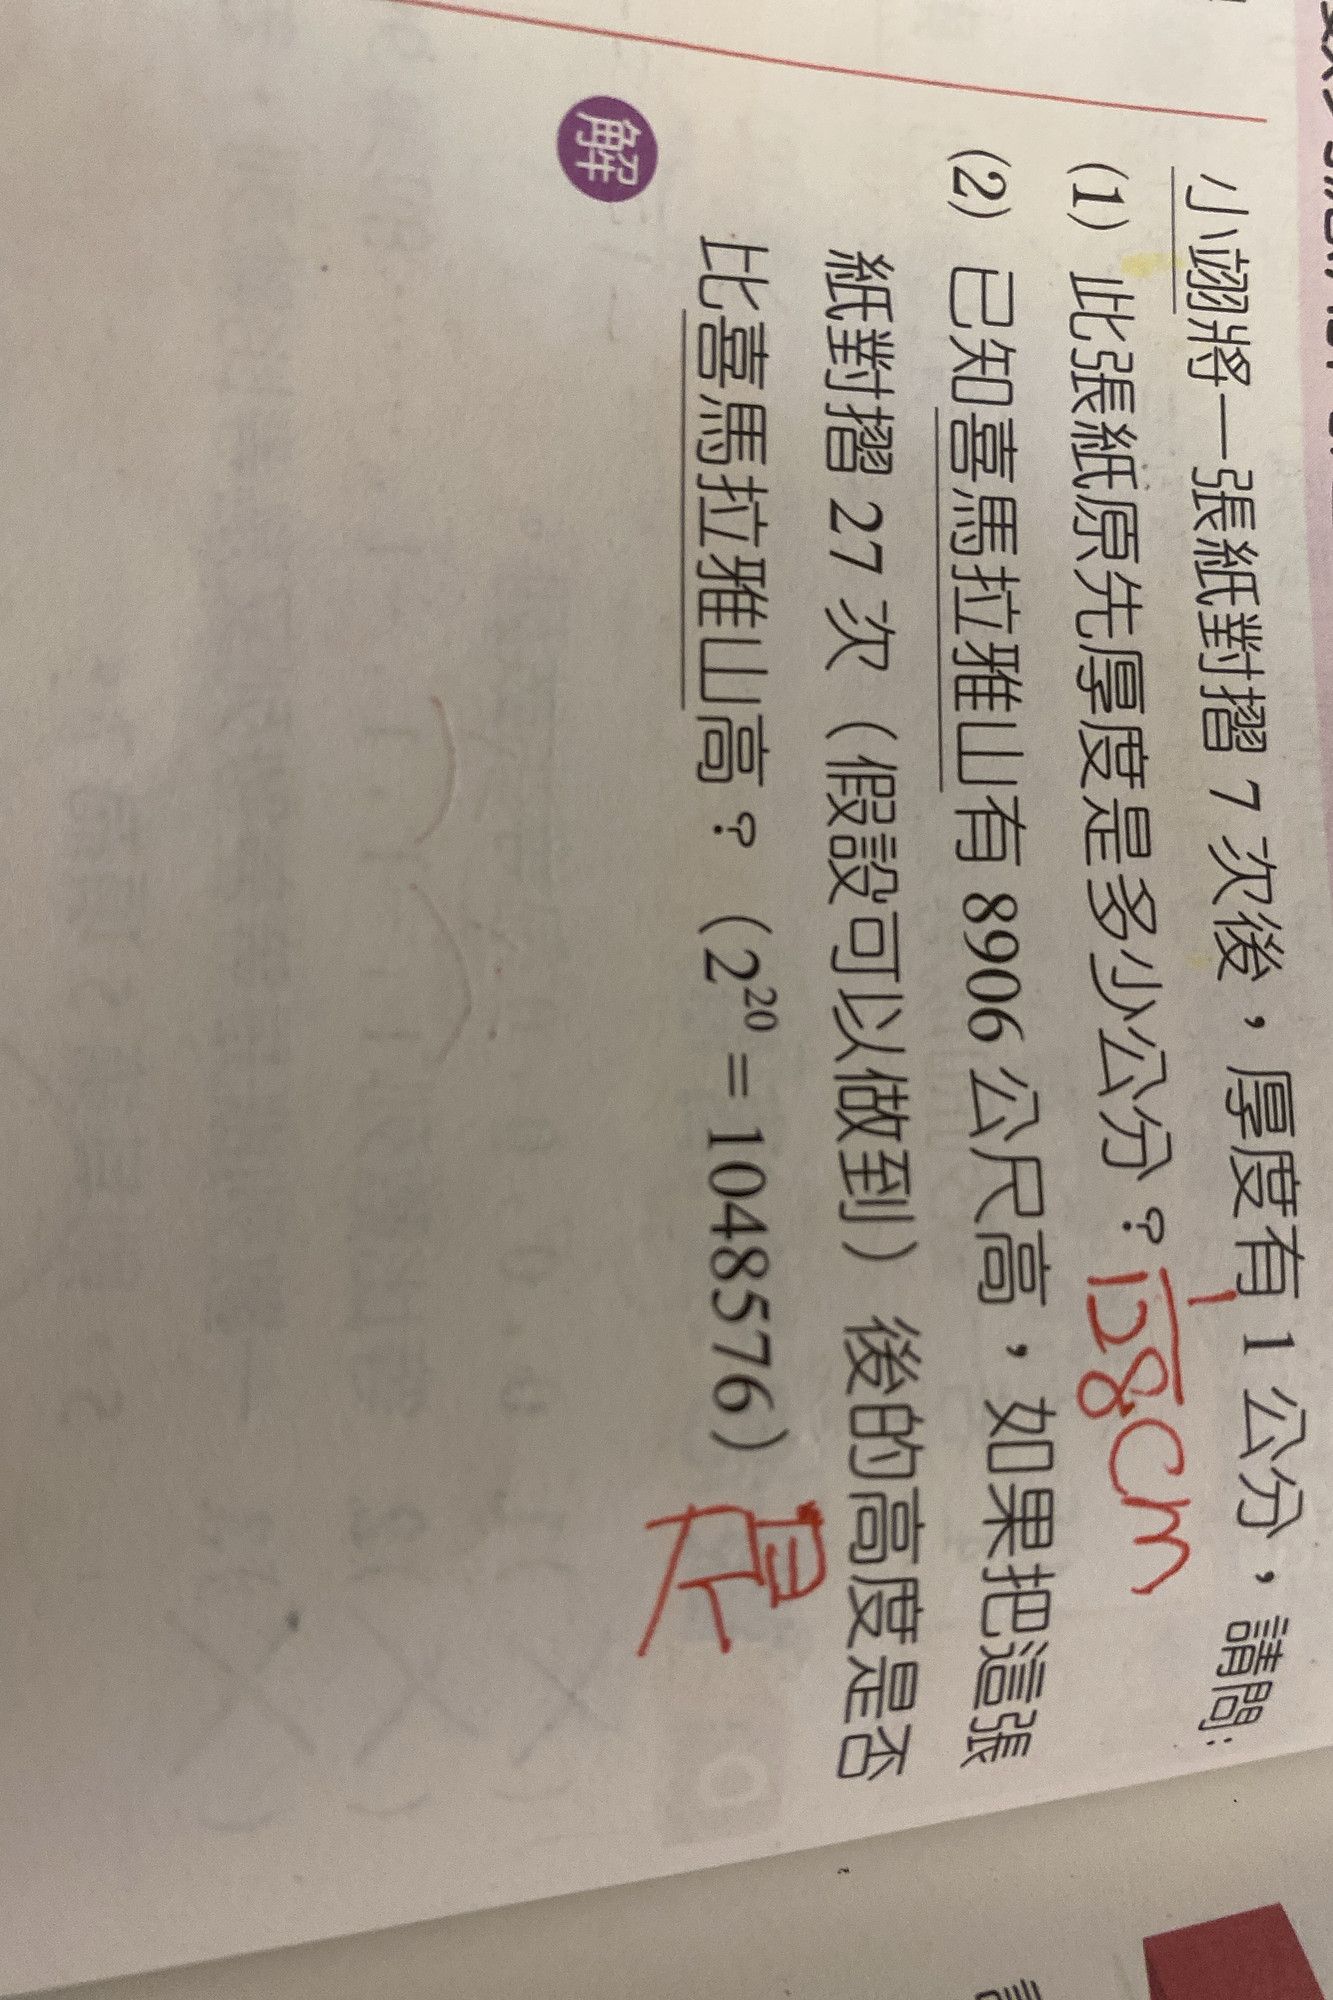 小翊將一張紙對摺 7 次後，厚度有 1 公分，請問：
(1) 此張紙原先厚度是多少公分？ 1/128 cm
(2) 已知喜馬拉雅山有 8906 公尺高，如果把這張
紙對摺 27 次（假設可以做到）後的高度是否
比喜馬拉雅山高？（2²⁰ = 1048576） 是
解